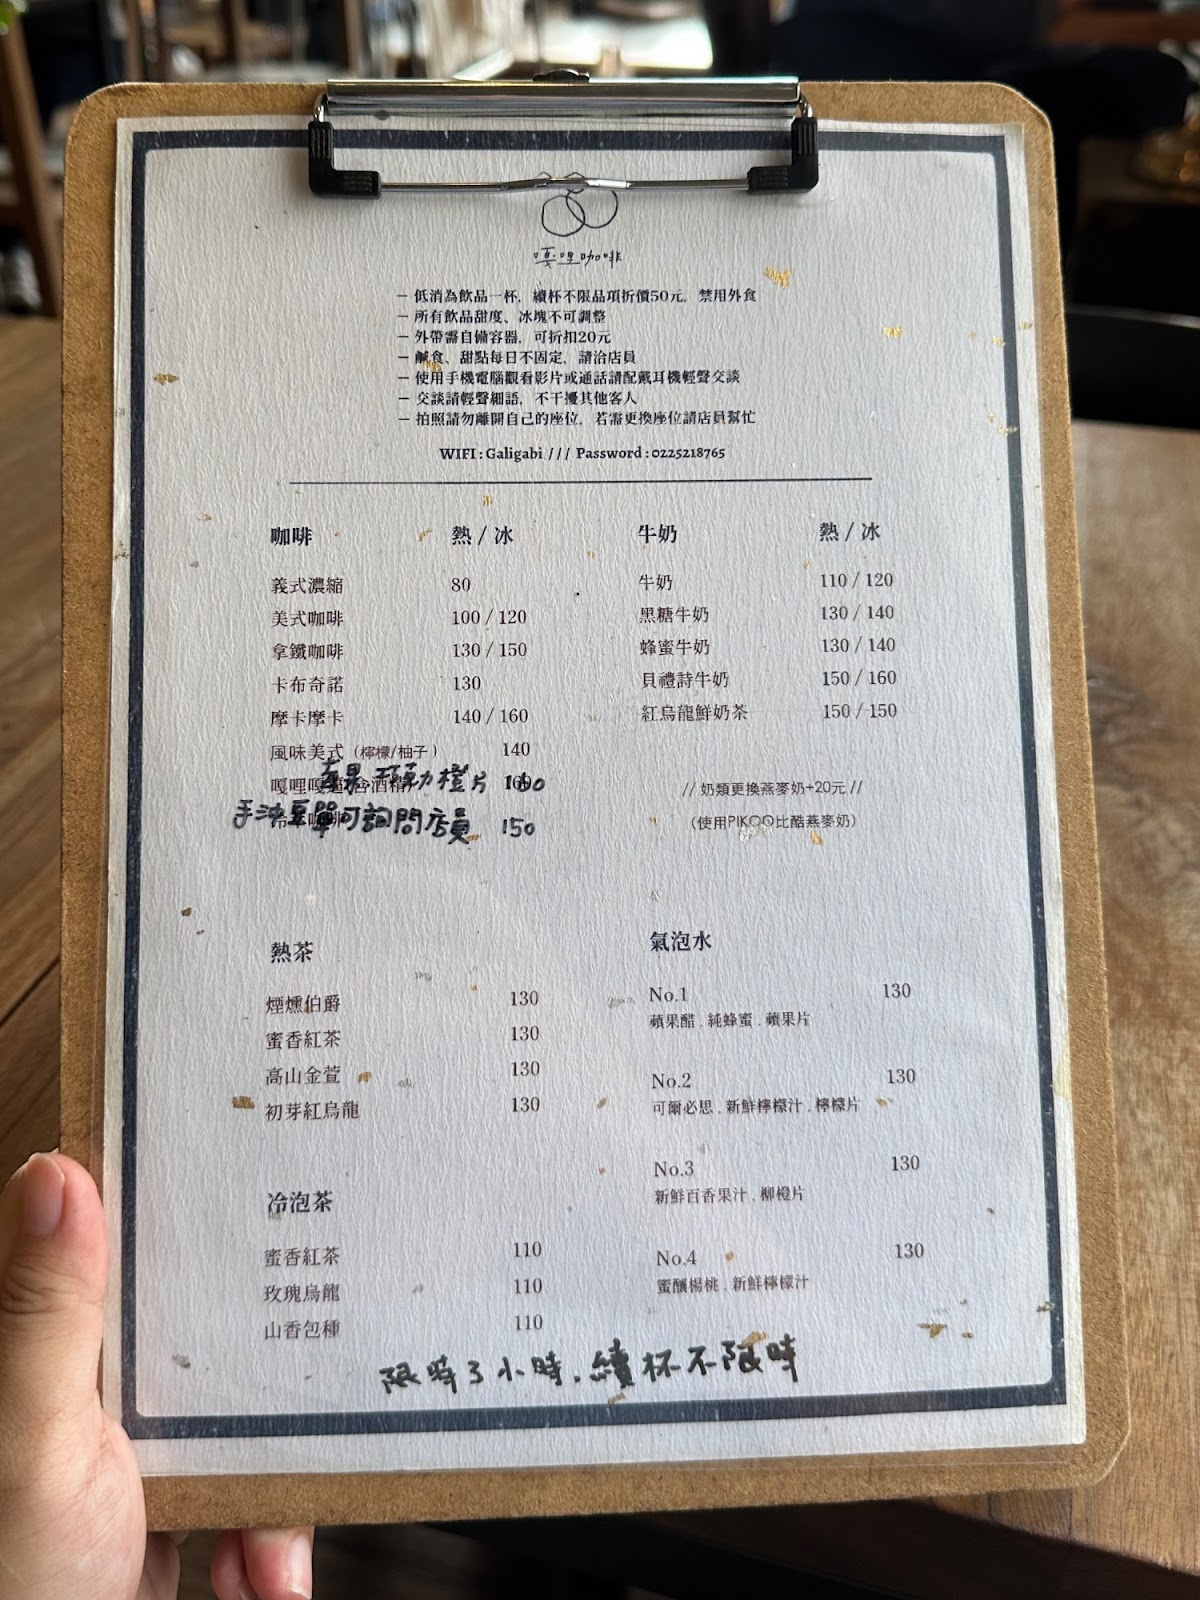 嘎哩咖啡
– 低消為飲品一杯，續杯不限品項折價50元，禁用外食
– 所有飲品甜度、冰塊不可調整
– 外帶需自備容器，可折扣20元
– 鹹食、甜點每日不固定，請洽店員
– 使用手機電腦觀看影片或通話請配戴耳機輕聲交談
– 交談請輕聲細語，不干擾其他客人
– 拍照請勿離開自己的座位，若需更換座位請店員幫忙
WIFI : Galigabi /// Password : 0225218765
咖啡 熱 / 冰
義式濃縮 80
美式咖啡 100 / 120
拿鐵咖啡 130 / 150
卡布奇諾 130
摩卡摩卡 140 / 160
風味美式（檸檬/柚子） 140
巧力橙片 160
手沖豆單可詢問店員 150
牛奶 熱 / 冰
牛奶 110 / 120
黑糖牛奶 130 / 140
蜂蜜牛奶 130 / 140
貝禮詩牛奶 150 / 160
紅烏龍鮮奶茶 150 / 150
// 奶類更換燕麥奶+20元 //
（使用PIKOO比酷燕麥奶）
熱茶
煙燻伯爵 130
蜜香紅茶 130
高山金萱 130
初芽紅烏龍 130
冷泡茶
蜜香紅茶 110
玫瑰烏龍 110
山香包種 110
氣泡水
No.1 130
蘋果醋 . 純蜂蜜 . 蘋果片
No.2 130
可爾必思 . 新鮮檸檬汁 . 檸檬片
No.3 130
新鮮百香果汁 . 柳橙片
No.4 130
蜜釀楊桃 . 新鮮檸檬汁
限時3小時，續杯不限時